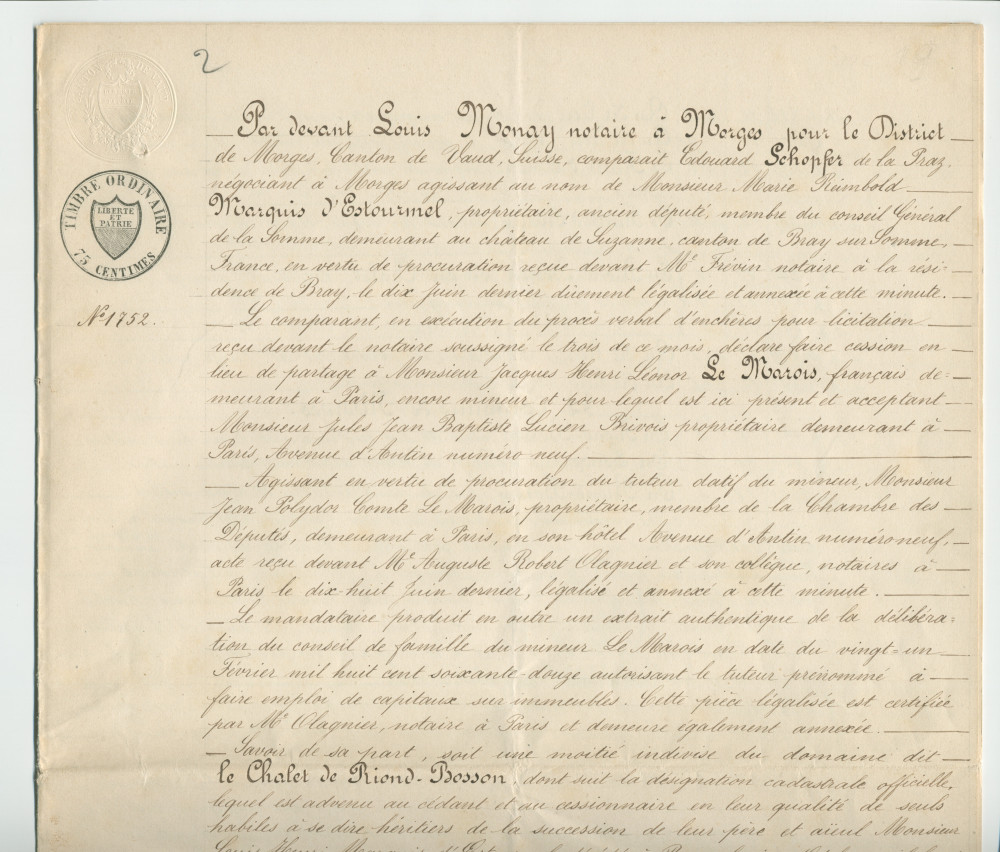 2
Par devant Louis Monay notaire à Morges pour le District
de Morges, Canton de Vaud, Suisse, comparait Edouard Schopfer de la Praz,
négociant à Morges agissant au nom de Monsieur Marie Reimbold
Marquis d'Estourmel, propriétaire, ancien député, membre du conseil Général
de la Somme, demeurant au château de Suzanne, canton de Bray sur Somme,
France, en vertu de procuration reçue devant Me Frévin notaire à la rési-
dence de Bray, le dix Juin dernier dûement légalisée et annexée à cette minute.
Le comparant, en exécution du procès verbal d'enchères pour licitation
reçu devant le notaire soussigné le trois de ce mois, déclare faire cession en
lieu de partage à Monsieur Jacques Henri Léonor Le Marois, français de=
meurant à Paris, encore mineur et pour lequel est ici présent et acceptant
Monsieur Jules Jean Baptiste Lucien Brivois propriétaire demeurant à
Paris, Avenue d'Antin numéro neuf.
Agissant en vertu de procuration du tuteur datif du mineur, Monsieur
Jean Polydor Comte Le Marois, propriétaire, membre de la Chambre des
Députés, demeurant à Paris, en son hôtel Avenue d'Antin numéro neuf,
acte reçu devant Me Auguste Robert Olagnier et son collègue, notaires à
Paris le dix huit Juin dernier, légalisé et annexé à cette minute.
Le mandataire produit en outre un extrait authentique de la délibéra=
tion du conseil de famille du mineur Le Marois en date du vingt=un
Février mil huit cent soixante-douze autorisant le tuteur prénommé à
faire emploi de capitaux sur immeubles. Cette pièce légalisée est certifiée
par Me Olagnier, notaire à Paris et demeure également annexée.
Savoir de sa part, soit une moitié indivise du domaine dit
le Chalet de Riond-Bosson, dont suit la désignation cadastrale officielle,
lequel est advenu au cédant et au cessionnaire en leur qualité de seuls
habiles à se dire héritiers de la succession de leur père et aïeul Monsieur
TIMBRE ORDINAIRE
LIBERTE
ET
PATRIE
75 CENTIMES
No 1752.